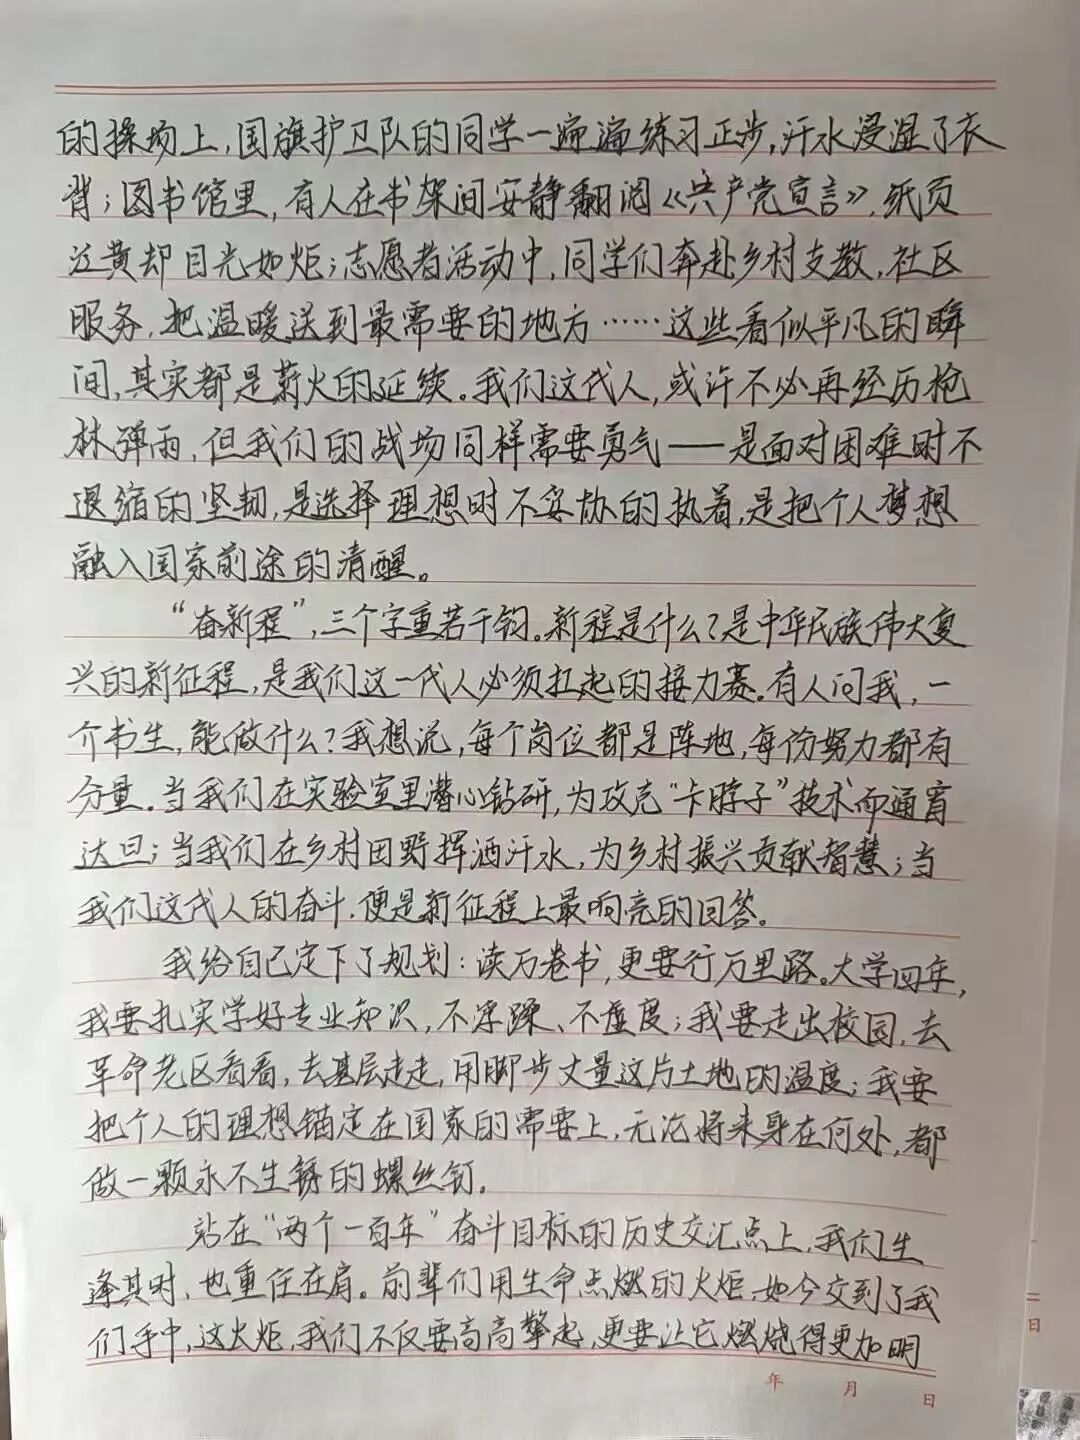 的操场上，国旗护卫队的同学一遍遍练习正步，汗水浸湿了衣
背；图书馆里，有人在书架间安静翻阅《共产党宣言》，纸页
泛黄却目光如炬；志愿者活动中，同学们奔赴乡村支教，社区
服务，把温暖送到最需要的地方……这些看似平凡的瞬
间，其实都是薪火的延续。我们这代人，或许不必再经历枪
林弹雨，但我们的战场同样需要勇气——是面对困难时不
退缩的坚韧，是选择理想时不妥协的执着，是把个人梦想
融入国家前途的清醒。
“奋新程”，三个字重若千钧。新程是什么？是中华民族伟大复
兴的新征程，是我们这一代人必须扛起的接力赛。有人问我，一
介书生，能做什么？我想说，每个岗位都是阵地，每份努力都有
分量。当我们在实验室里潜心钻研，为攻克“卡脖子”技术而通宵
达旦；当我们在乡村田野挥洒汗水，为乡村振兴贡献智慧；当
我们这代人的奋斗，便是新征程上最响亮的回答。
我给自己定下了规划：读万卷书，更要行万里路。大学四年，
我要扎实学好专业知识，不浮躁、不虚度；我要走出校园，去
革命老区看看，去基层走走，用脚步丈量这片土地的温度；我要
把个人的理想锚定在国家的需要上，无论将来身在何处，都
做一颗永不生锈的螺丝钉。
站在“两个一百年”奋斗目标的历史交汇点上，我们生
逢其时，也重任在肩。前辈们用生命点燃的火炬，如今交到了我
们手中，这火炬，我们不仅要高高擎起，更要让它燃烧得更加明
年 月 日
日